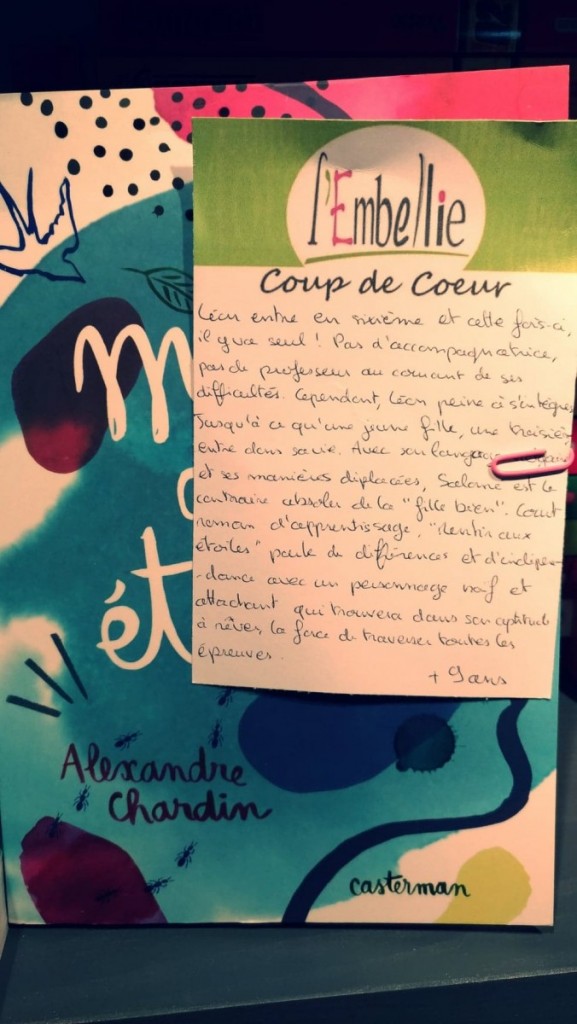 l'Embellie
Coup de Coeur
Léon entre en sixième et cette fois-ci,
il y va seul ! Pas d'accompagnatrice,
pas de professeur au courant de ses
difficultés. Cependant, Léon peine à s'intégrer
Jusqu'à ce qu'une jeune fille, une troisième
entre dans sa vie. Avec son langage
et ses manières déplacées, Salomé est le
contraire absolu de la "fille bien". Court
roman d'apprentissage, "Mentir aux
étoiles" parle de différences et d'indépen-
-dance avec un personnage naïf et
attachant qui trouvera dans son aptitude
à rêver, la force de traverser toutes les
épreuves.
+ 9 ans
m
ét
Alexandre
Chardin
casterman